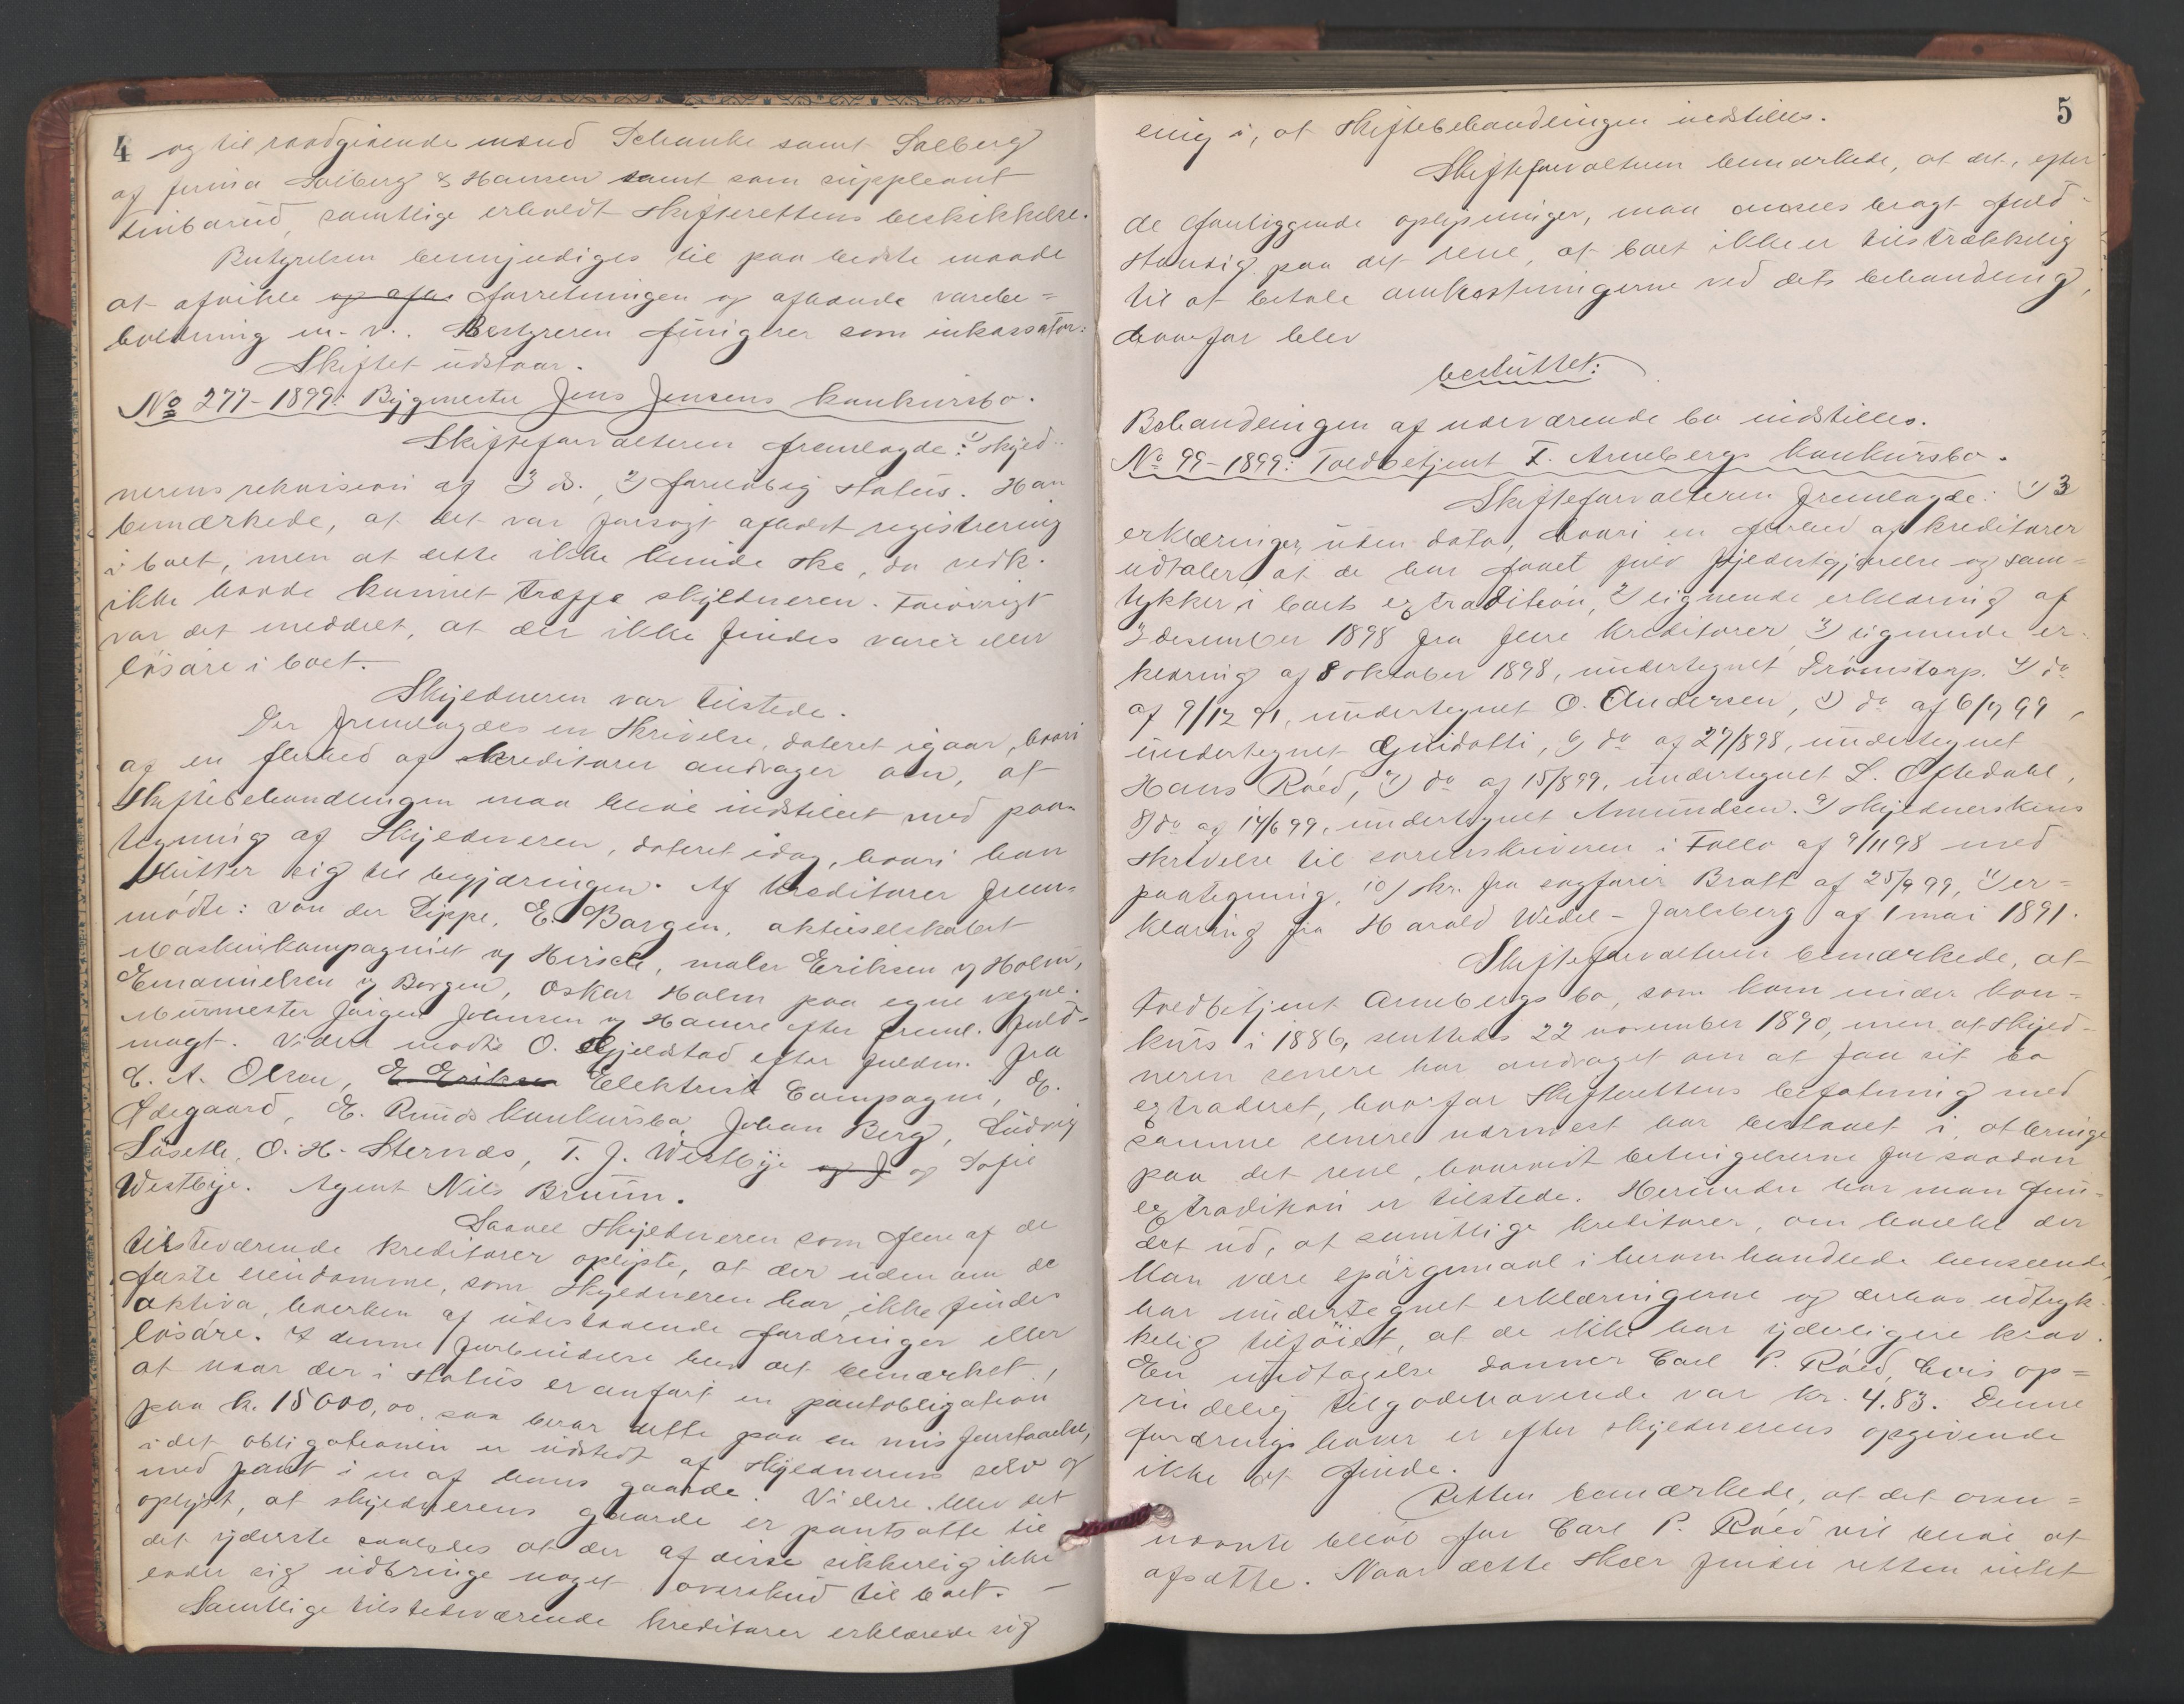 4
og til raadgivende mænd Schanke samt Solberg
af firma Solberg & Hansen samt som suppleant
samtlige erholdt skifterettens beskikkelse.
Bestyrelsen bemyndiges til paa bedste maade
at afvikle og afh forretningen og afhænde varebe=
holdning m.v. Bestyreren fungerer som inkassator.
Skiftet udstaar.
No 277-1899: Bygmester Jens Jensens konkursbo.
Skifteforvalteren fremlagde: 1) skyld-
nerens rekvisision af 3 ds., 2) foreløbig status. Han
bemærkede, at det var forsøgt afholdt registrering
i boet, men at dette ikke kunde ske, da vedk.
ikke havde kunnet træffe skyldneren. Forøvrigt
var det meddelt, at der ikke findes varer eller
løsøre i boet.
Skyldneren var tilstede.
Der fremlagdes en skrivelse, dateret igaar, hvori
af en flerhed af kreditorer andrages om, at
skiftebehandlingen maa blive indstillet med paa-
tegning af skyldneren, dateret idag, hvori han
slutter sig til begjæringen. Af kreditorer frem-
mødte: von der Lippe, E. Borgen, aktieselskabet
Maskinkompagniet ved Hirsch, maler Eriksen ved Holm,
Emanuelsen ved Borgen, Oskar Holm paa egne vegne.
Murmester Jørgen Johnsen ved Hamre efter freml. fuld-
magt. Videre mødte O. Gjeldstad efter fuldm. fra
C. A. Olsen, E. Eriksen Elektrisk Compagni, E.
Ødegaard, E. Ruuds konkursbo, Johan Berg, Ludvig
Løseth, O. H. Sternæs, T. J. Westbye og J og Sofie
Westbye. Agent Nils Bruun.
Saavel skyldneren som flere af de
tilstedeværende kreditorer oplyste, at der uden om de
faste eiendomme, som skyldneren har, ikke findes
aktiva, hverken af udestaaende fordringer eller
løsøre. I denne forbindelse blev det bemærket,
at naar der i status er anført en pantobligation
paa kr. 15000,00, saa beror dette paa en misforstaaelse,
idet obligationen er udstedt af skyldneren selv og
med pant i en af hans gaarde. Videre blev det
oplyst, at skyldnerens gaarde er pantsatte til
det yderste saaledes at der af disse sikkerlig ikke
lader sig udbringe noget overskud til boet. —
Samtlige tilstedeværende kreditorer erklærede sig
5
enig i, at skiftebehandlingen indstilles.
Skifteforvalteren bemærkede, at det, efter
de foreliggende oplysninger, maa ansees bragt fuld-
stændig paa det rene, at boet ikke er tilstrækkelig
til at betale omkostningerne ved dets behandling,
hvorfor blev
besluttet:
Behandlingen af nærværende bo indstilles.
No 99-1899: Toldbetjent F. Arnebergs konkursbo.
Skifteforvalteren fremlagde: 1) 3
erklæringer uden dato, hvori en flerhed af kreditorer
udtaler at de har faaet fuld fyldestgjørelse og sam=
tykker i boets extradition, 2) lignende erklæring af
3 desember 1898 fra flere kreditorer, 3) lignende er-
klæring af 8 oktober 1898, undertegnet Drømstorp. 4) do
af 9/12 91, undertegnet O. Andersen, 5) do af 6/9 99,
undertegnet Guidotti, 6) do af 27/8 98, undertegnet
Hans Røed, 7) do af 15/8 99, undertegnet L. Oftedahl,
8) do af 14/6 99, undertegnet Amundsen. 9) skyldnerskens
skrivelse til sorenskriveren i Follo af 9/11 98 med
paategning, 10) skr. fra sagfører Bratt af 25/9 99, 11) er=
klæring fra Harald Wedel-Jarlsberg af 1 mai 1891.
Skifteforvalteren bemærkede, at
toldbetjent Arnebergs bo, som kom under kon=
kurs i 1886, sluttedes 22 november 1890, men at skyld-
neren senere har andraget om at faa sit bo
extraderet, hvorfor skifterettens befatning med
samme senere nærmest har bestaaet i, at bringe
paa det rene, hvorvidt betingelserne for saadan
extradition er tilstede. Herunder har man fun-
det ud, at samtlige kreditorer, om hvilke der
kan være spørgsmaal i heromhandlede henseende,
har undertegnet erklæringerne og derhos udtryk-
kelig tilføiet, at de ikke har yderligere krav.
En undtagelse danner Carl P. Røed, hvis op=
rindelig tilgodehavende var kr. 4.83. Denne
fordringshaver er efter skyldnerens opgivende
ikke at finde.
Retten bemærkede, at det oven=
nævnte beløb for Carl P. Røed vil blive at
afsætte. Naar dette skeer finder retten intet